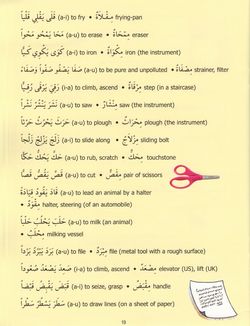 قَلَى يَقْلِي قَلْياً (a-i) to fry • مِقْلَاةٌ frying-pan
مَحَا يَمْحُو مَحْواً (a-u) to erase • مِمْحَاةٌ eraser
كَوَى يَكْوِي كَيّاً (a-i) to iron • مِكْوَاةٌ iron (the instrument)
صَفَا يَصْفُو صَفْواً وَصَفَاءً (a-u) to be pure and unpolluted • مِصْفَاةٌ strainer, filter
رَقِيَ يَرْقَى رُقِيّاً (i-a) to climb, ascend • مِرْقَاةٌ step (in a staircase)
نَشَرَ يَنْشُرُ نَشْراً (a-u) to saw • مِنْشَارٌ saw (the instrument)
حَرَثَ يَحْرُثُ حَرْثاً (a-u) to plough • مِحْرَاثٌ plough (the instrument)
زَلَجَ يَزْلِجُ زَلْجاً (a-i) to slide along • مِزْلَاجٌ sliding bolt
حَكَّ يَحُكُّ حَكّاً (a-u) to rub, scratch • مِحَكٌّ touchstone
قَصَّ يَقُصُّ قَصّاً (a-u) to cut • مِقَصٌّ pair of scissors
قَادَ يَقُودُ قِيَادَةً (a-u) to lead an animal by a halter
• مِقْوَدٌ halter, steering (of an automobile)
حَلَبَ يَحْلُبُ حَلْباً (a-u) to milk (an animal)
• مِحْلَبٌ milking vessel
بَرَدَ يَبْرُدُ بَرْداً (a-u) to file • مِبْرَدٌ file (metal tool with a rough surface)
صَعِدَ يَصْعَدُ صُعُوداً (i-a) to climb, ascend • مِصْعَدٌ elevator (US), lift (UK)
قَبَضَ يَقْبِضُ قَبْضاً (a-i) to seize, grasp • مِقْبَضٌ handle
سَطَرَ يَسْطُرُ سَطْراً (a-u) to draw lines (on a sheet of paper)
19